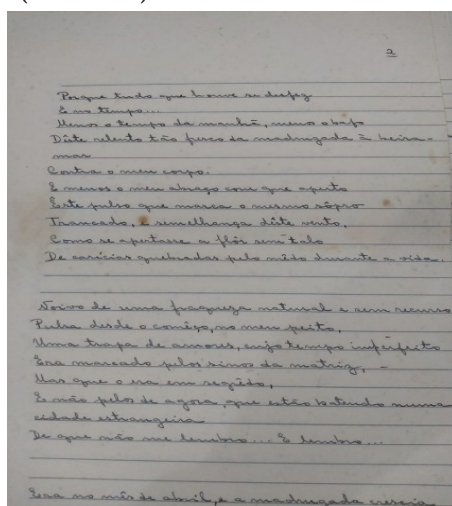 2
Porque tudo que houve se desfez
E no tempo...
Menos o tempo da manhã, menos o bafo
Dêste relento tão fresco da madrugada à beira-
mar
Contra o meu corpo.
E menos o meu abraço com que aperto
Este pulso que marca o mesmo sôpro
Trancado, e semelhança dêste vento,
Como se apertasse a flôr sem talo
De carícias quebradas pelo mêdo durante a vida.
Noivo de uma fraqueza natural e sem recurso
Pulsa desde o comêço, no meu peito,
Uma trapa de amores, cujo tempo imperfeito
Era marcado pelos sinos da matriz, -
Mas que o era em segrêdo,
E não pelos de agora, que estão batendo numa
cidade estrangeira
De que não me lembro... E lembro...
Era no mês de abril, e a madrugada crescia